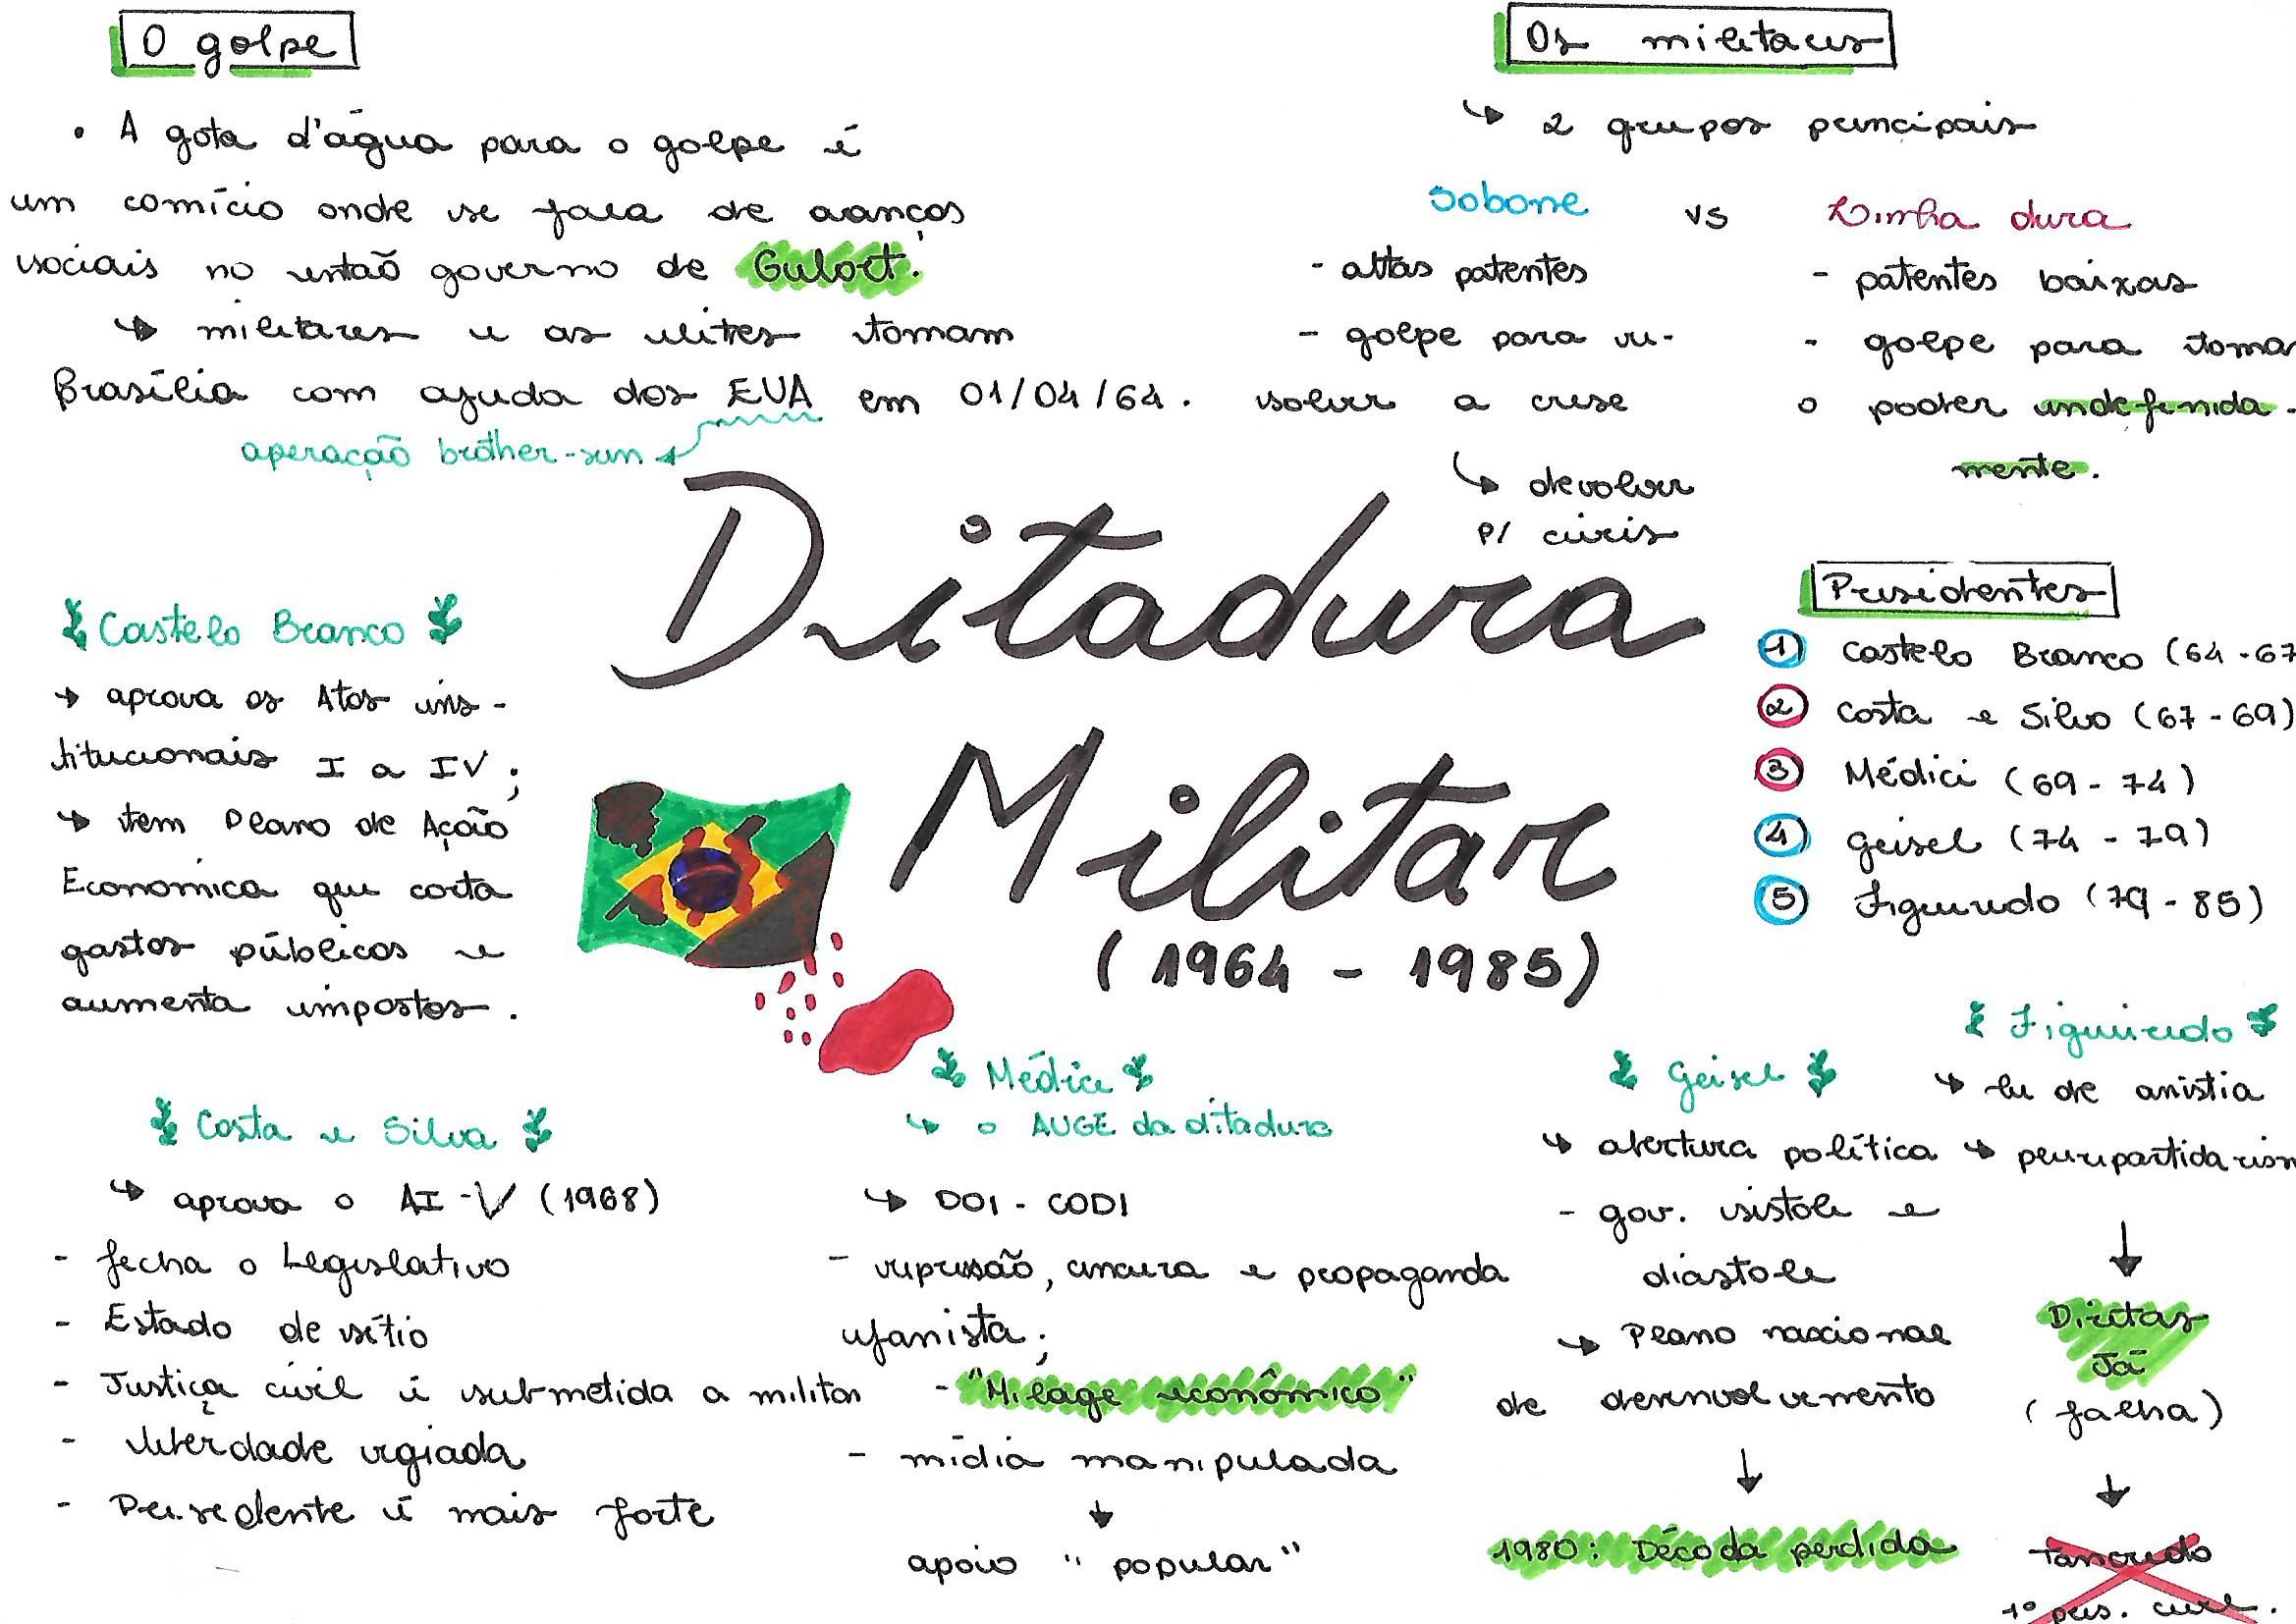 O golpe
• A gota d'água para o golpe é
um comício onde se fala de avanços
sociais no então governo de Gulart.
↳ militares e as elites tomam
Brasília com ajuda dos EUA em 01/04/64.
operação brother-sun
Os militares
↳ 2 grupos principais
Sobone vs Linha dura
- altas patentes
- golpe para re-
solver a crise
↳ devolver
p/ civis
- patentes baixas
- golpe para toma
o poder indefinida-
mente.
Ditadura
Militar
(1964 - 1985)
Presidentes
1 Castelo Branco (64-67
2 Costa e Silva (67-69)
3 Médici (69-74)
4 Geisel (74-79)
5 Figueiredo (79-85)
Castelo Branco
→ aprova os Atos ins-
titucionais I a IV;
↳ tem Plano de Ação
Econômica que corta
gastos públicos e
aumenta impostos.
Costa e Silva
↳ aprova o AI-V (1968)
- fecha o Legislativo
- Estado de sítio
- Justiça civil é submetida a militar
- liberdade vigiada
- Presidente é mais forte
Médici
↳ o AUGE da ditadura
↳ DOI-CODI
- repressão, censura e propaganda
ufanista;
- "Milage econômico"
- mídia manipulada
↓
apoio "popular"
Geisel
↳ abertura política
- gov. sístole e
diástole
↳ Plano nacional
de desenvolvimento
↓
1980: Década perdida
Figueiredo
↳ lei de anistia
↳ pluripartidarism
↓
Diretas
Já
(falha)
↓
Tancredo
1º pres. civil.